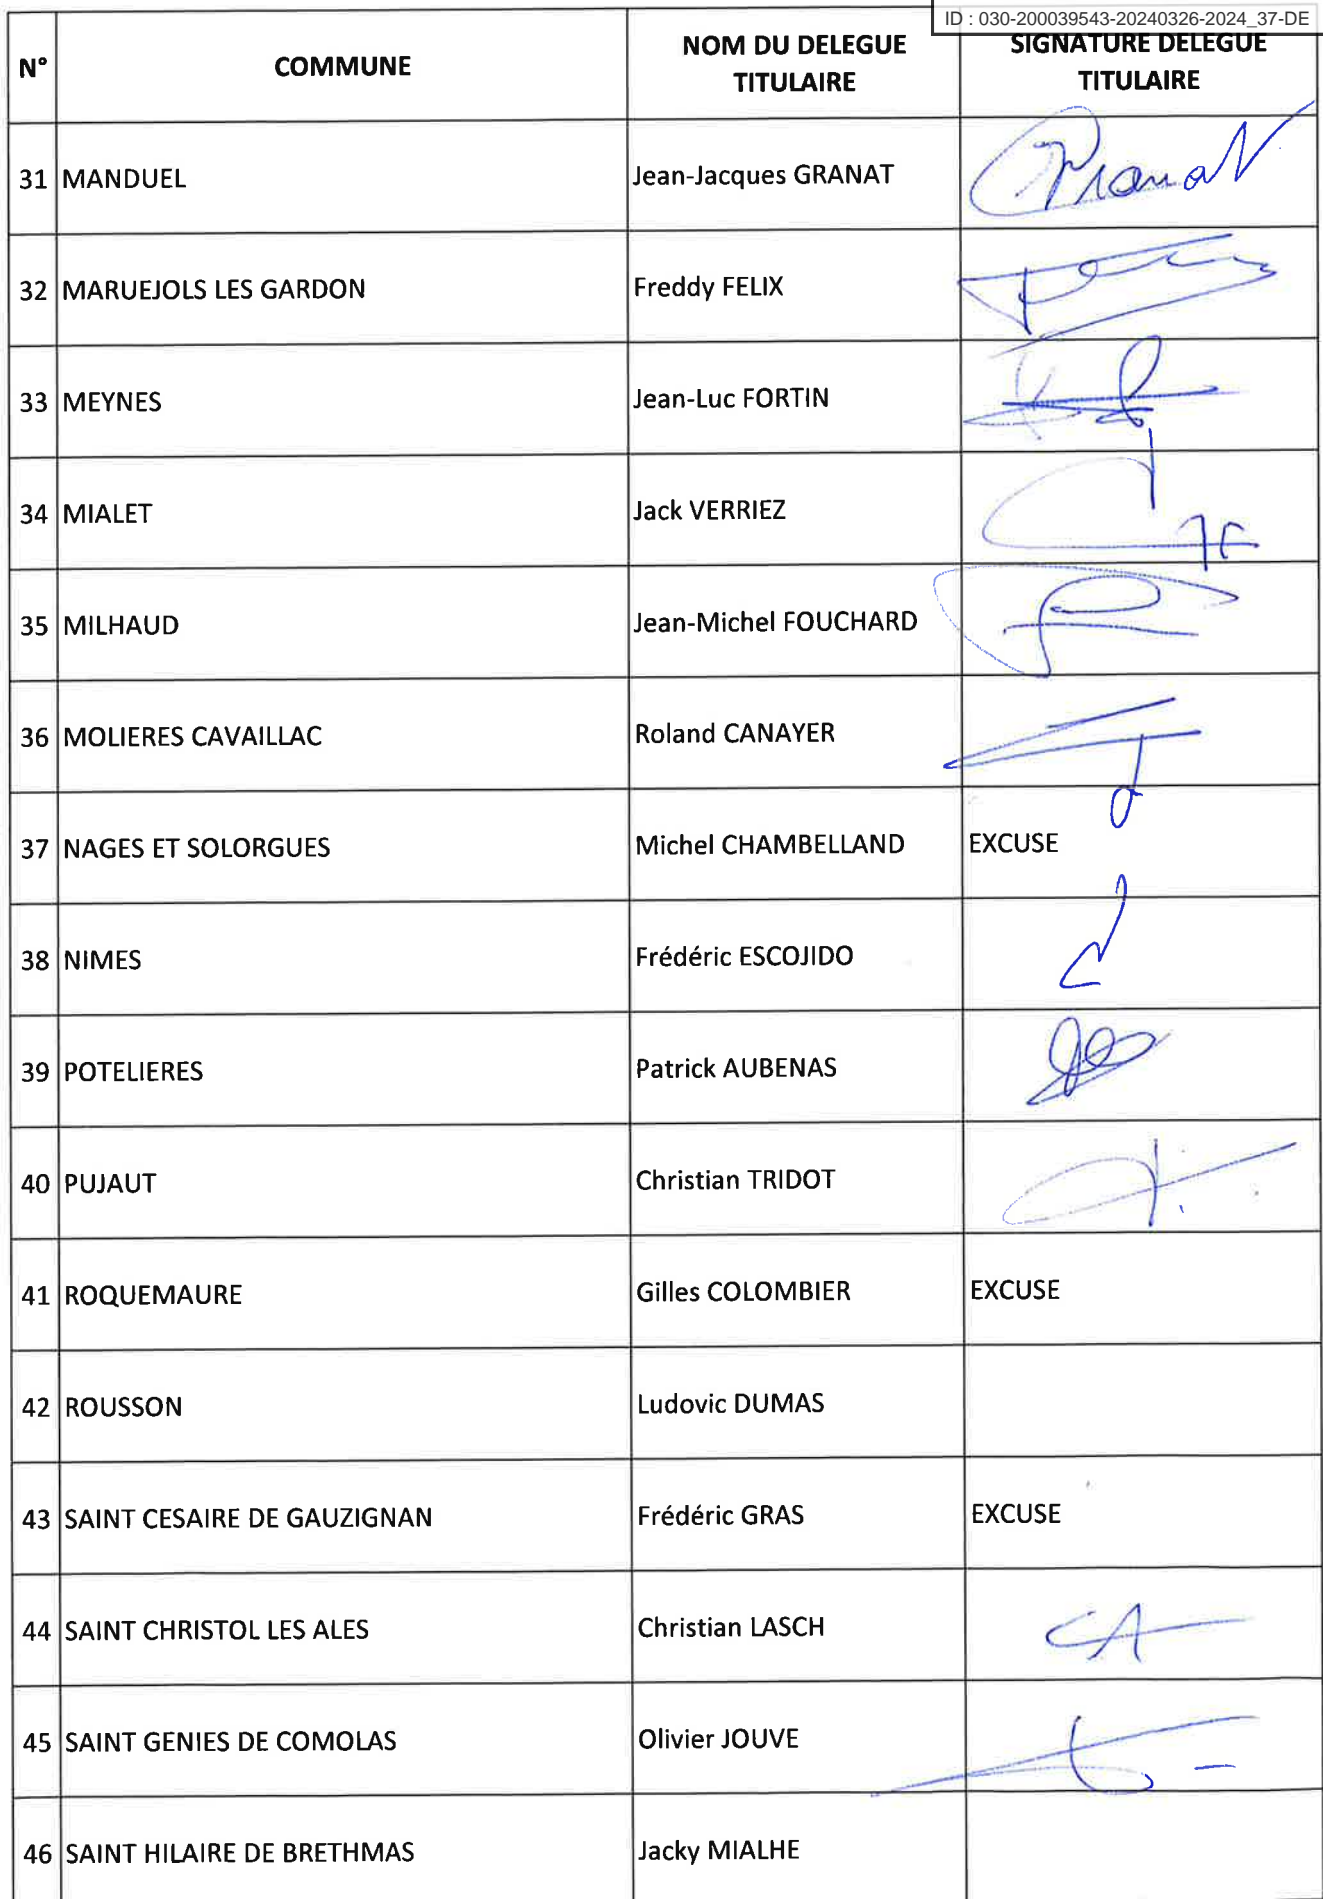 ID : 030-200039543-20240326-2024_37-DE
N° COMMUNE NOM DU DELEGUE TITULAIRE SIGNATURE DELEGUE TITULAIRE
31 MANDUEL Jean-Jacques GRANAT Granat
32 MARUEJOLS LES GARDON Freddy FELIX
33 MEYNES Jean-Luc FORTIN
34 MIALET Jack VERRIEZ
35 MILHAUD Jean-Michel FOUCHARD
36 MOLIERES CAVAILLAC Roland CANAYER
37 NAGES ET SOLORGUES Michel CHAMBELLAND EXCUSE
38 NIMES Frédéric ESCOJIDO
39 POTELIERES Patrick AUBENAS
40 PUJAUT Christian TRIDOT
41 ROQUEMAURE Gilles COLOMBIER EXCUSE
42 ROUSSON Ludovic DUMAS
43 SAINT CESAIRE DE GAUZIGNAN Frédéric GRAS EXCUSE
44 SAINT CHRISTOL LES ALES Christian LASCH
45 SAINT GENIES DE COMOLAS Olivier JOUVE
46 SAINT HILAIRE DE BRETHMAS Jacky MIALHE